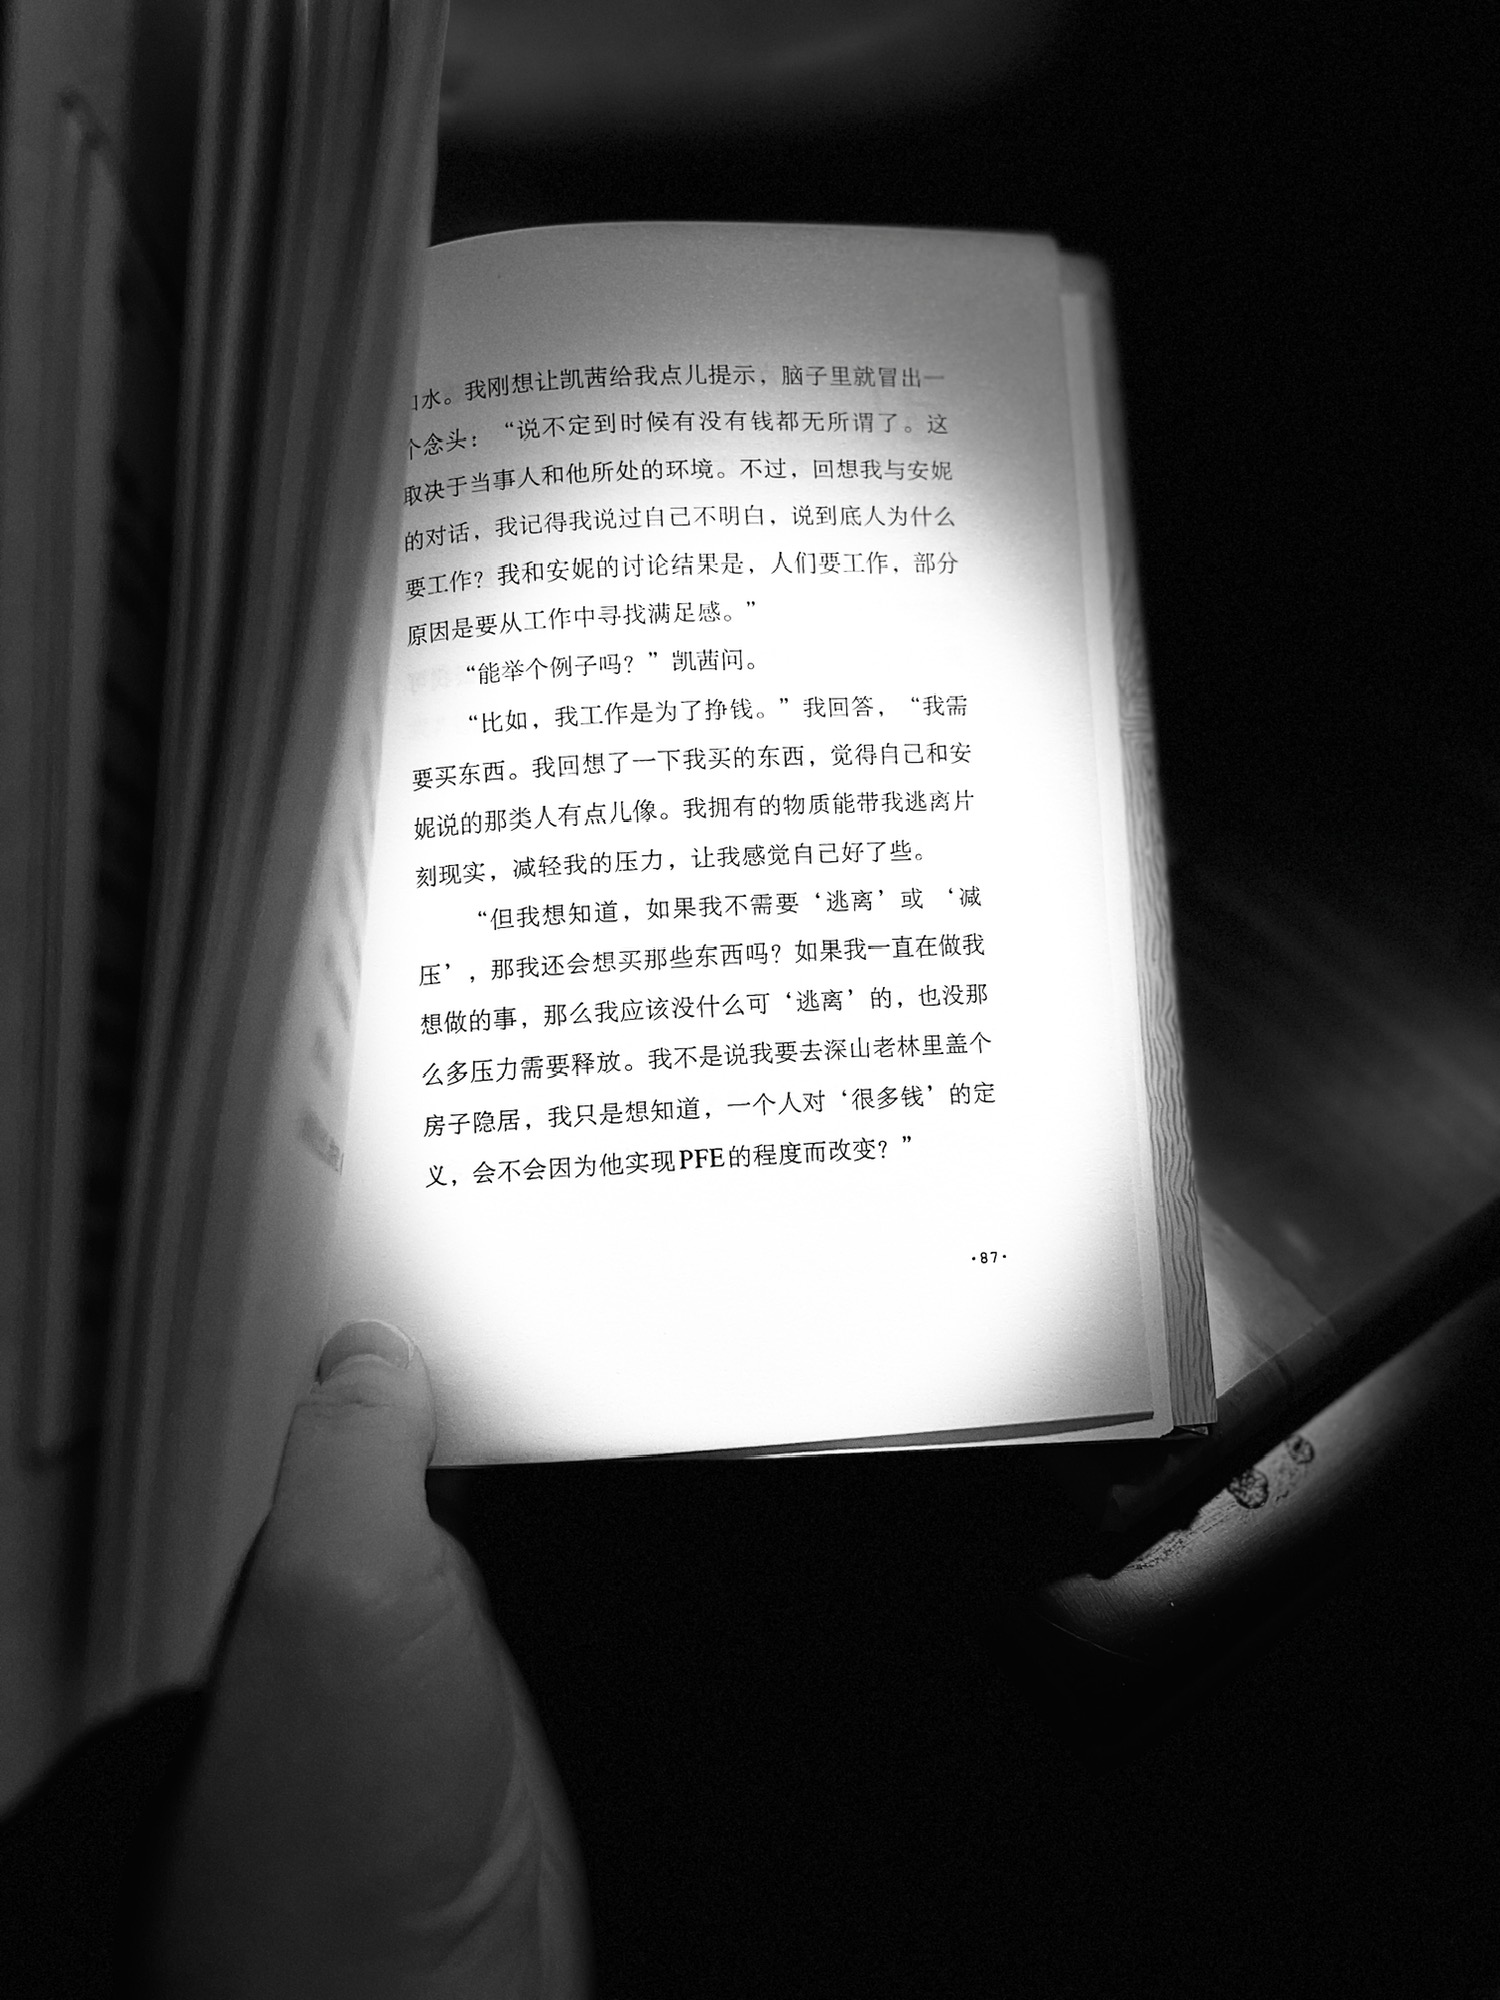 水。我刚想让凯茜给我点儿提示，脑子里就冒出一
个念头：“说不定到时候有没有钱都无所谓了。这
取决于当事人和他所处的环境。不过，回想我与安妮
的对话，我记得我说过自己不明白，说到底人为什么
要工作？我和安妮的讨论结果是，人们要工作，部分
原因是要从工作中寻找满足感。”
“能举个例子吗？”凯茜问。
“比如，我工作是为了挣钱。”我回答，“我需
要买东西。我回想了一下我买的东西，觉得自己和安
妮说的那类人有点儿像。我拥有的物质能带我逃离片
刻现实，减轻我的压力，让我感觉自己好了些。
“但我想知道，如果我不需要‘逃离’或‘减
压’，那我还会想买那些东西吗？如果我一直在做我
想做的事，那么我应该没什么可‘逃离’的，也没那
么多压力需要释放。我不是说我要去深山老林里盖个
房子隐居，我只是想知道，一个人对‘很多钱’的定
义，会不会因为他实现PFE的程度而改变？”
·87·